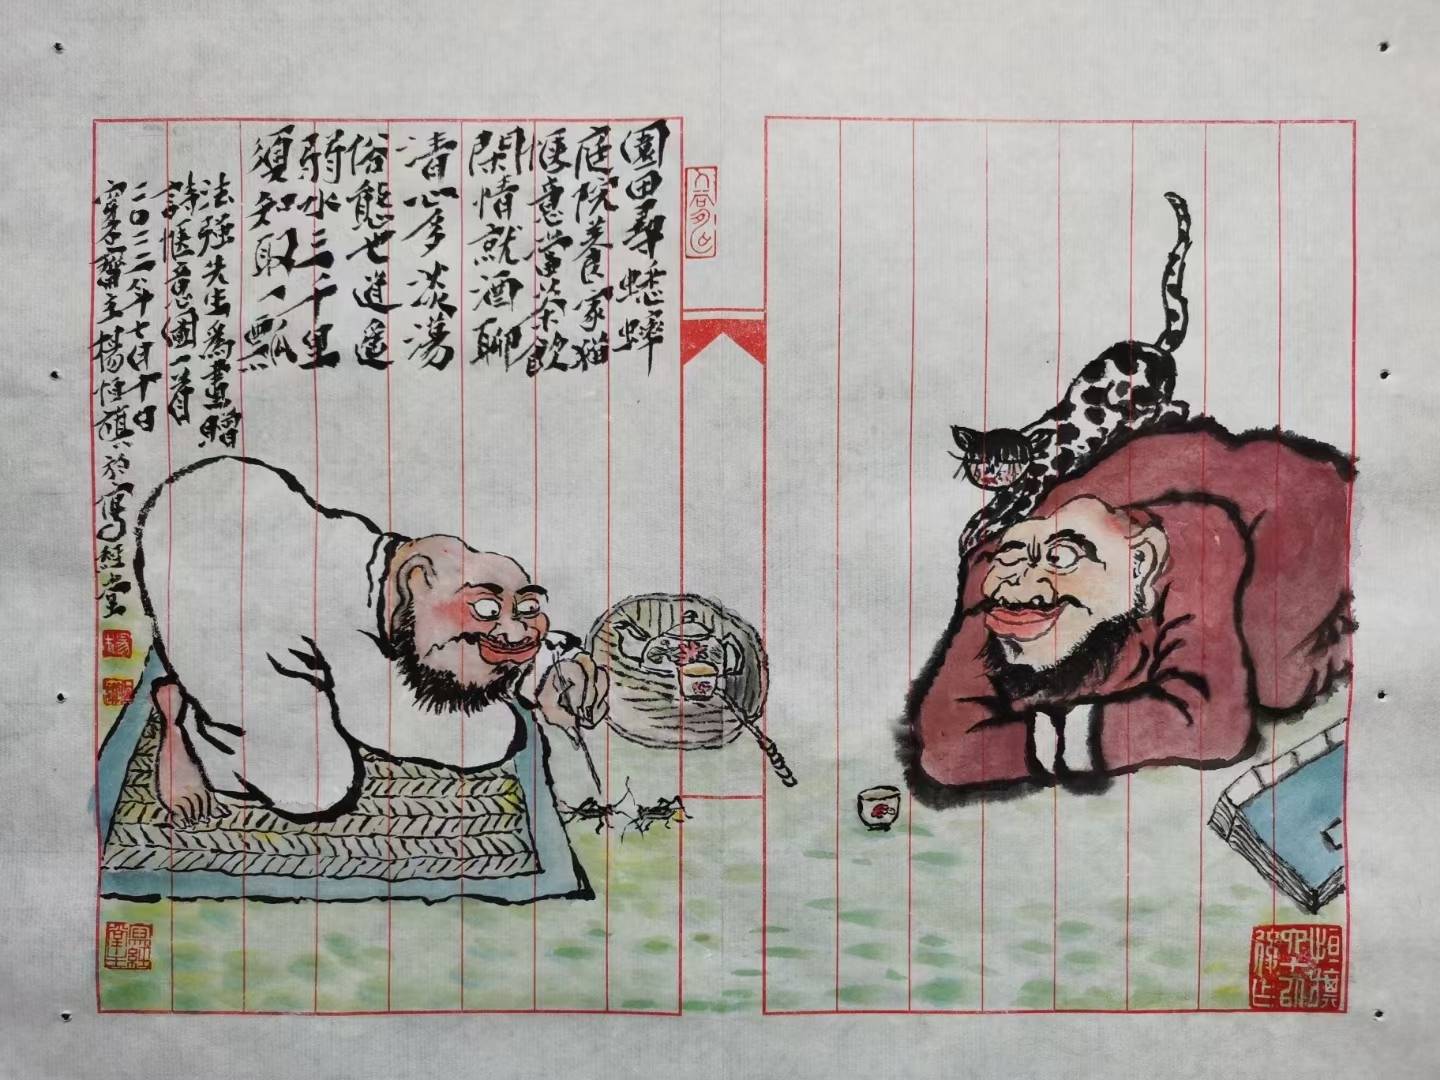 園田尋蟋蟀
庭院養家猫
愜意當茶飲
閑情就酒聊
清心多淡蕩
俗態也逍遥
弱水三千里
須知取一瓢
法強先生為畫贈
詩愜意圖一首
二〇二二年七月十日
齋主楊恒旗於寫經堂